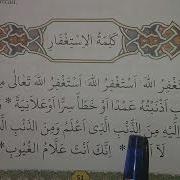 كَلِمَةُ الْاِسْتِغْفَارِ
اَسْتَغْفِرُ اللهَ اَسْتَغْفِرُ اللهَ اَسْتَغْفِرُ اللهَ تَعَالٰى
اَذْنَبْتُهُ عَمْدًا اَوْ خَطَأً سِرًّا اَوْ عَلَانِيَةً *
اِلَيْهِ مِنَ الذَّنْبِ الَّذِى اَعْلَمُ وَمِنَ الذَّنْبِ
لَا * اِنَّكَ اَنْتَ عَلَّامُ الْغُيُوبِ *